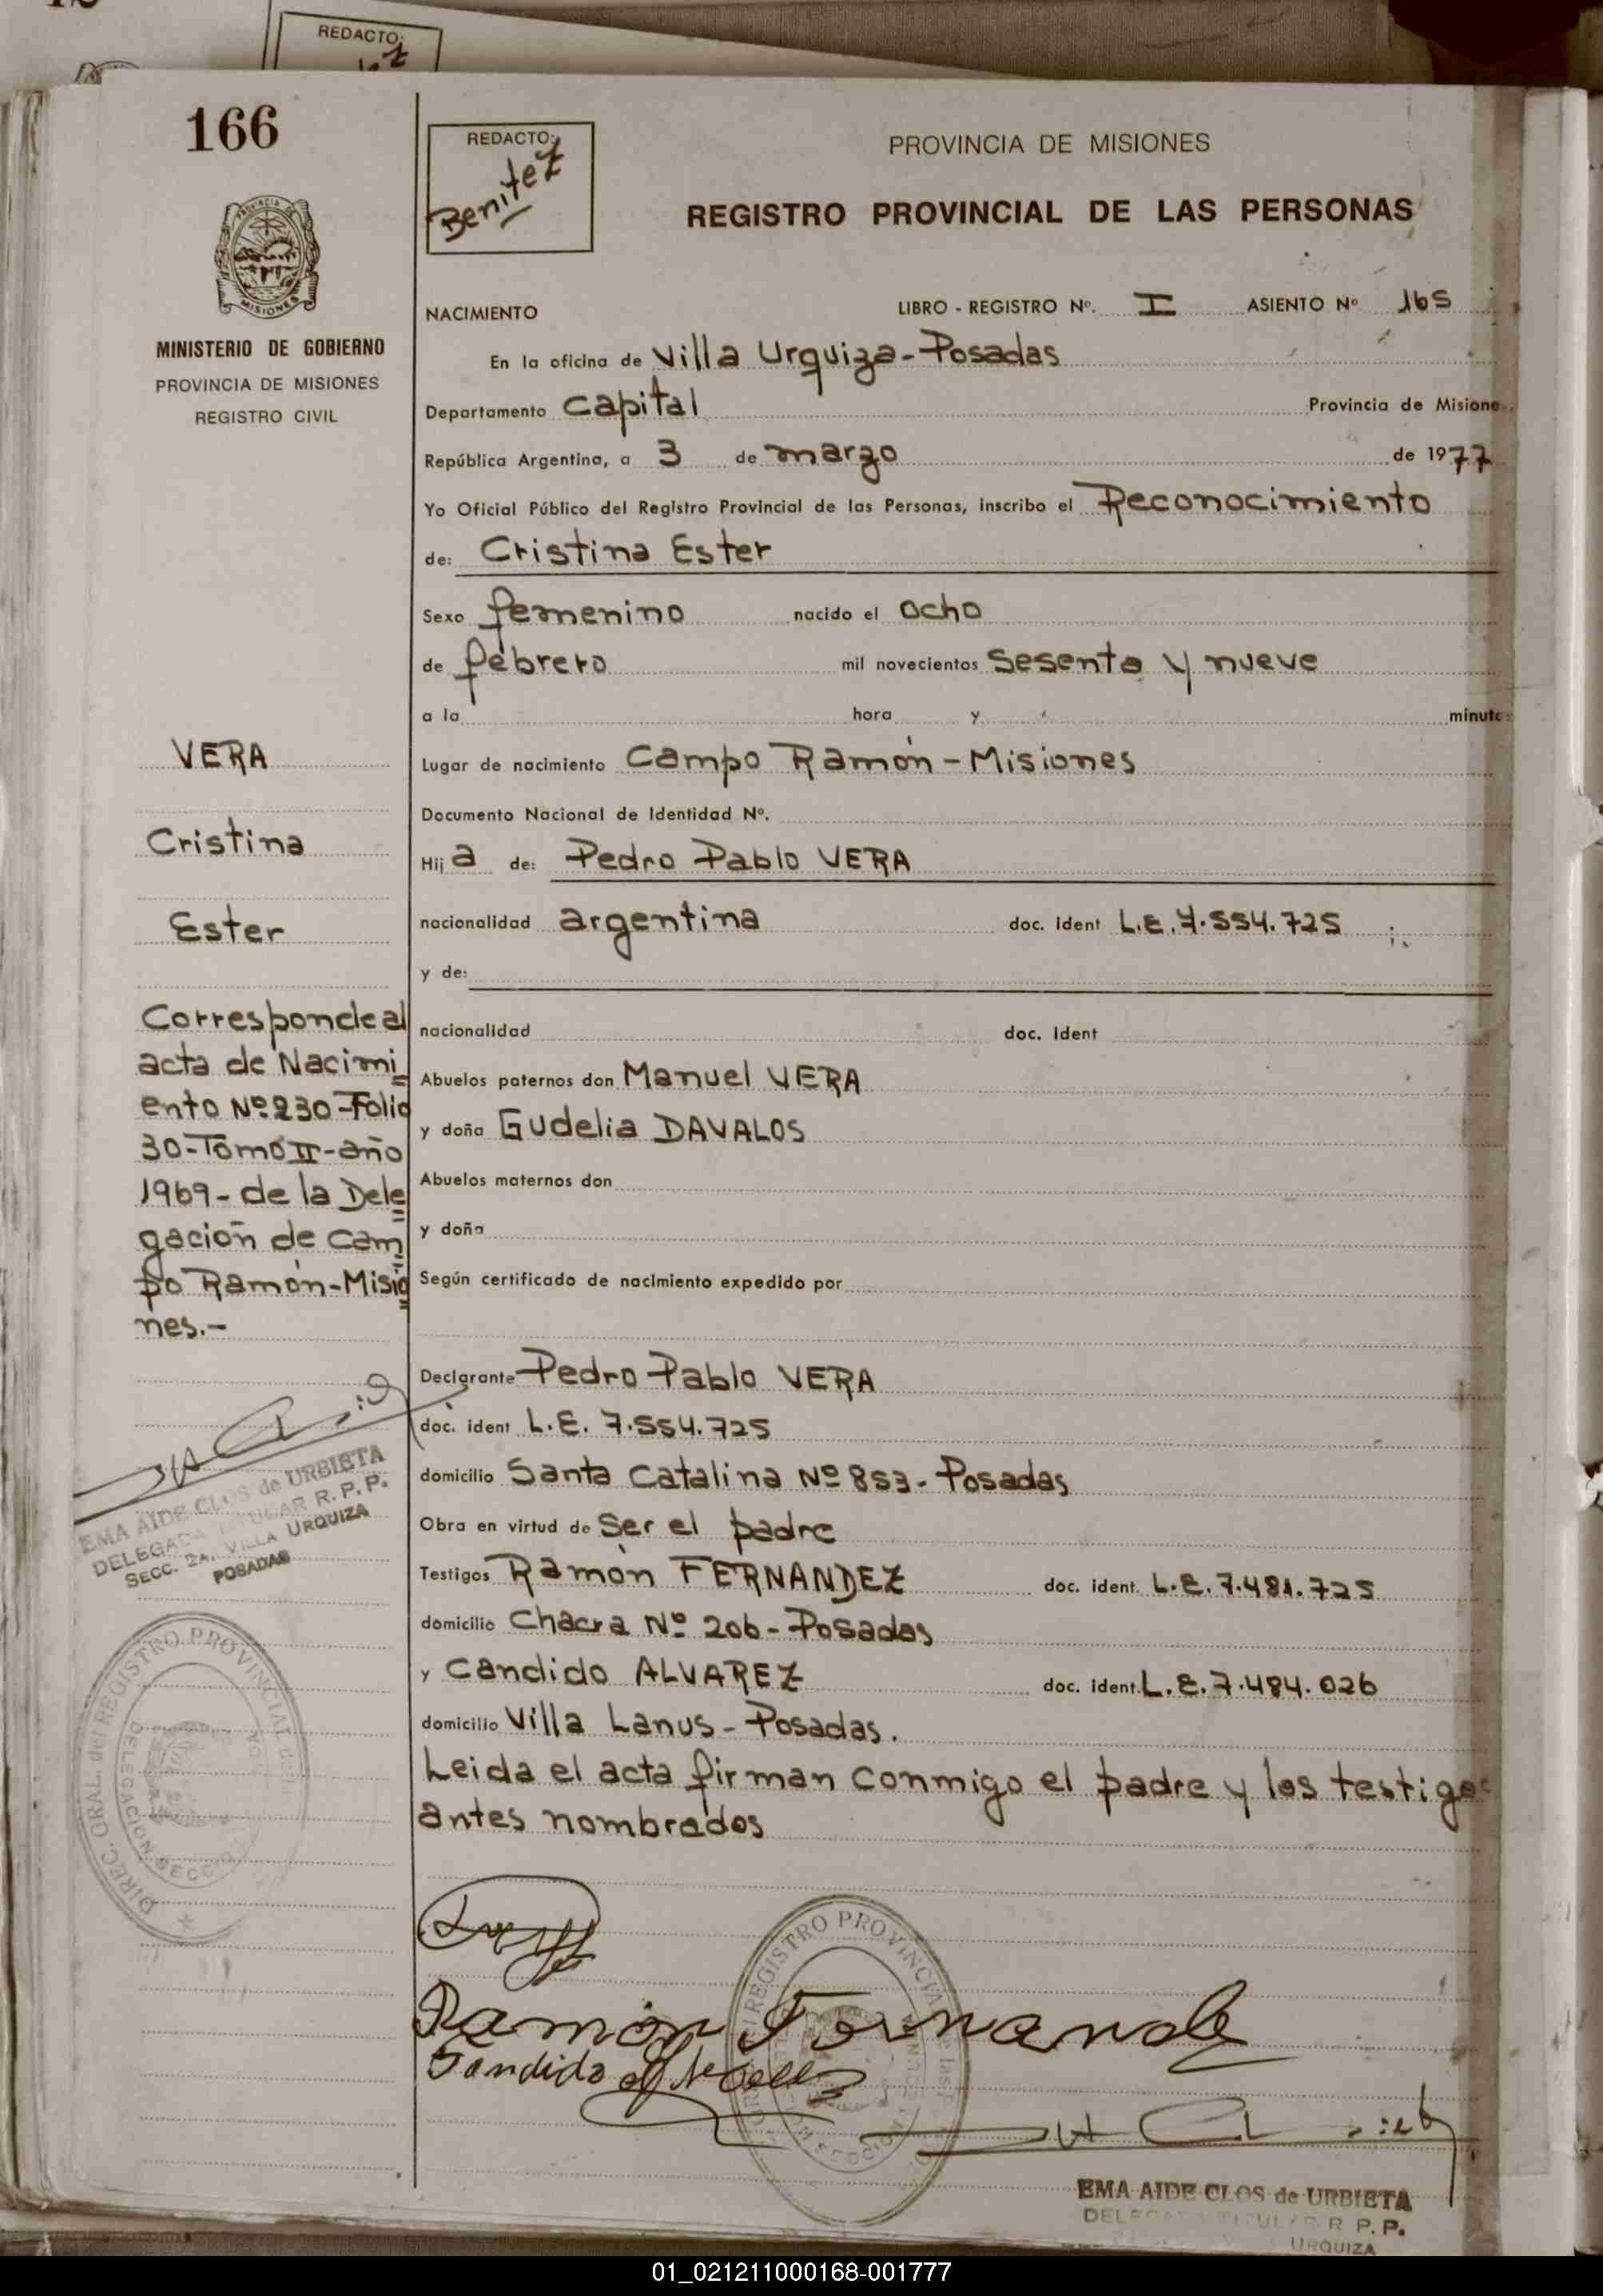 REDACTO:
166
REDACTO:
Benitez
PROVINCIA DE MISIONES
REGISTRO PROVINCIAL DE LAS PERSONAS
MISIONES
MINISTERIO DE GOBIERNO
PROVINCIA DE MISIONES
REGISTRO CIVIL
NACIMIENTO LIBRO - REGISTRO Nº. I ASIENTO Nº 165
En la oficina de Villa Urquiza-Posadas
Departamento Capital Provincia de Misione
República Argentina, a 3 de marzo de 1977
Yo Oficial Público del Registro Provincial de las Personas, inscribo el Reconocimiento
de: Cristina Ester
Sexo femenino nacido el ocho
de febrero mil novecientos sesenta y nueve
a la hora y minuto
Lugar de nacimiento Campo Ramón-Misiones
Documento Nacional de Identidad Nº.
Hij a de: Pedro Pablo VERA
nacionalidad argentina doc. ident L.E. 7.554.725
y de:
nacionalidad doc. Ident
Abuelos paternos don Manuel VERA
y doña Gudelia DAVALOS
Abuelos maternos don
y doña
Según certificado de nacimiento expedido por
Declarante Pedro Pablo VERA
doc. ident L.E. 7.554.725
domicilio Santa Catalina Nº 853-Posadas
Obra en virtud de Ser el padre
Testigos Ramón FERNANDEZ doc. ident. L.E. 7.481.725
domicilio Chacra Nº 206-Posadas
y Candido ALVAREZ doc. ident. L.E. 7.484.026
domicilio Villa Lanus-Posadas.
Leida el acta firman conmigo el padre y los testigos
antes nombrados
VERA
Cristina
Ester
Corresponde al
acta de Nacimi
ento Nº 230-Folio
30-Tomo II-año
1969-de la Dele
gación de Cam
po Ramón-Misio
nes.-
EMA AIDE CLOS de URBIETA
DELEGADA TITULAR R. P. P.
SECC. 2A. VILLA URQUIZA
POSADAS
DIREC. GRAL. del REGISTRO PROVINCIAL
DELEGACION SECCIO
Ramón Fernande
Candido
REGISTRO PROVINCIA
EMA AIDE CLOS de URBIETA
R P. P.
URQUIZA
01_021211000168-001777